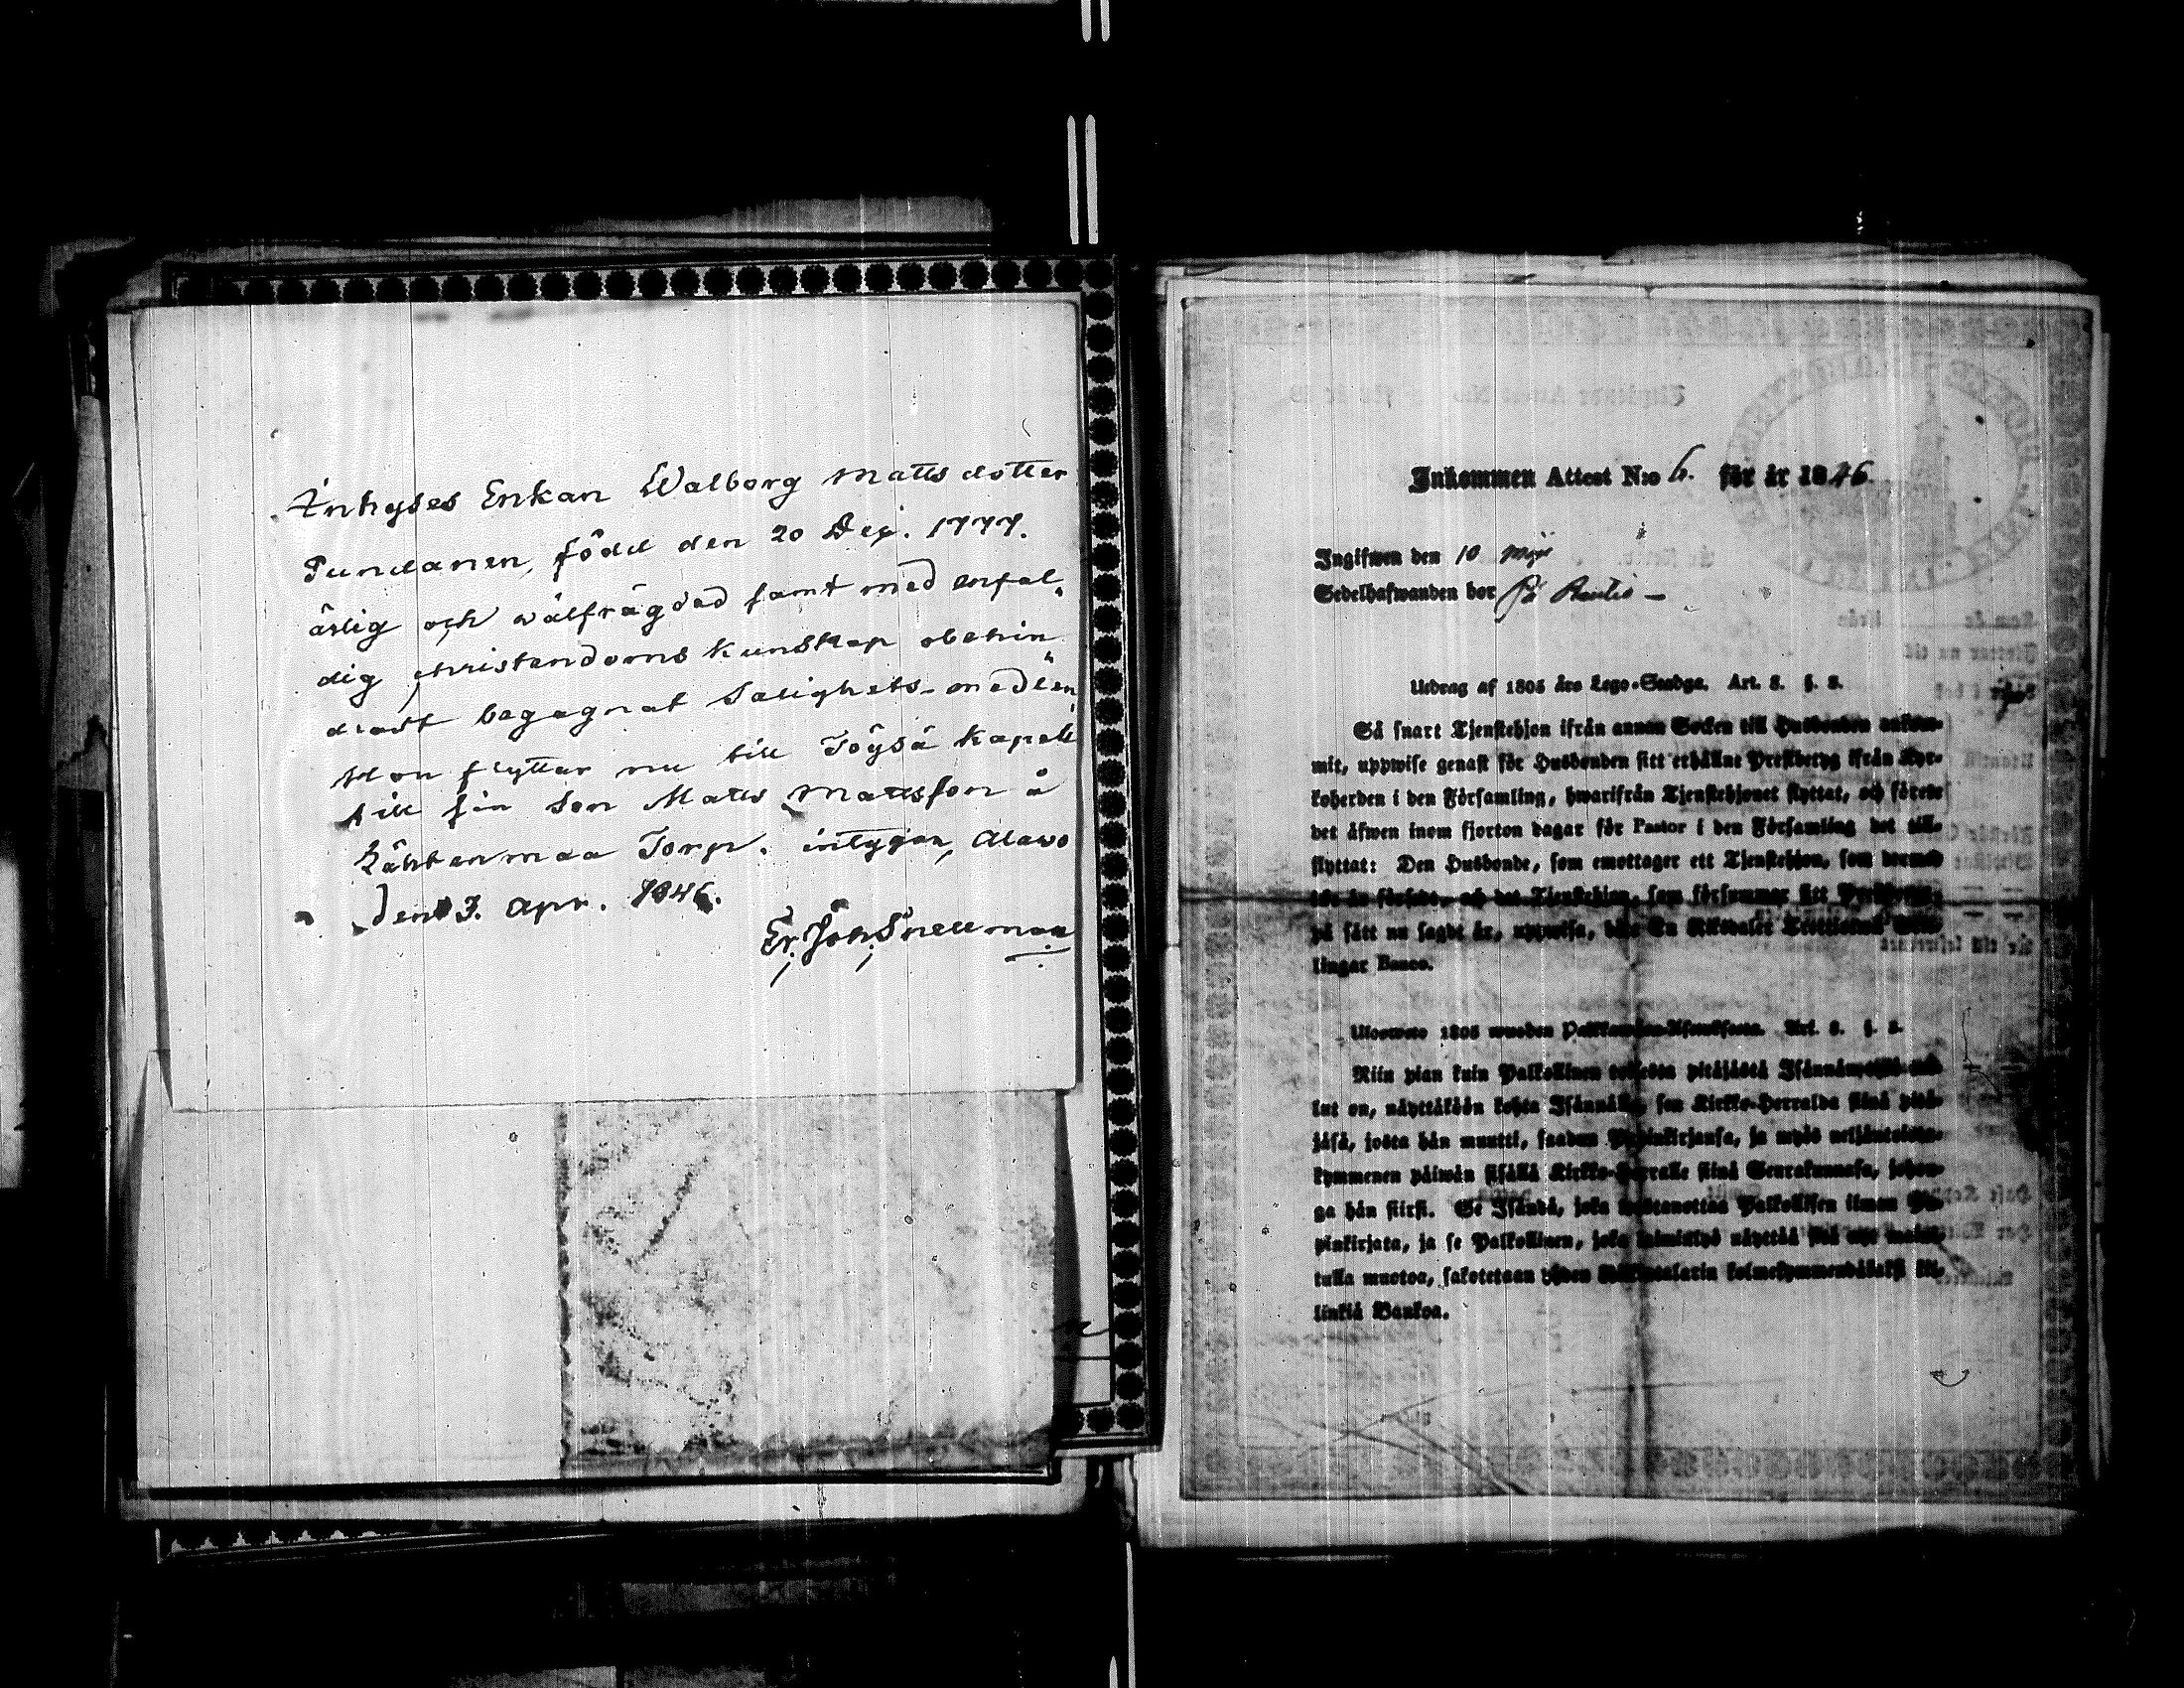 Inhyses Enkan Walborg Matts dotter
Pundanen, född den 20 Dec. 1777.
ärlig och wälfrägdad samt med enfal„
dig christendoms kunskap obehin„
dradt begagnat Salighets-medlen
Hon flyttar nu till Töysä Kapell
till sin Son Matts Mattsson å
Lähtenmaa Torp. intygar, Alawo
den 3. Apr. 1846.
Er. Joh. Snellman
Inkommen Attest N:o 6. för år 1846
Ingifwen den 10 Maji
Sedelhafwanden bor på
Utdrag af 1805 års Lego-Stadga. Art. 8. §. 8.
Så snart Tjenstehjon ifrån annan Socken till Husbonden ankom-
mit, uppwise genast för Husbonden sitt erhållne Prestbetyg ifrån Kyr-
koherden i den Församling, hwarifrån Tjenstehjonet flyttat, och förete
det äfwen inom fjorton dagar för Pastor i den Församling det till-
flyttat: Den Husbonde, som emottager ett Tjenstehjon, som dermed
icke är försedt, och det Tjenstehjon, som försummar sitt
på sätt nu sagdt är, uppwisa, böte En Riksdaler Trettiotwå Skil-
lingar Banco.
Ulosweto 1805 wuoden Palkkawäen-Asetuksesta. Art. 8. §. 8.
Niin pian kuin Palkollinen toisesta pitäjästä
lut on, näyttäköön kohta Isännälle, sen Kirkko-Herralda siinä pitä-
jäsä, josta hän muutti, saadun Papinkirjansa, ja myös neljäntoista-
kymmenen päiwän sisällä Kirkko-Herralle siinä Seurakunnasa, johon-
ga hän siirsi. Se Isändä, joka wastanottaa Palkollisen ilman Pa-
pinkirjata, ja se Palkollinen, joka laiminlyö näyttää sitä nyt maini-
tulla muotoa, sakotetaan yhden Riikintalarin kolmekymmendäkaksi kil-
linkiä Bankoa.